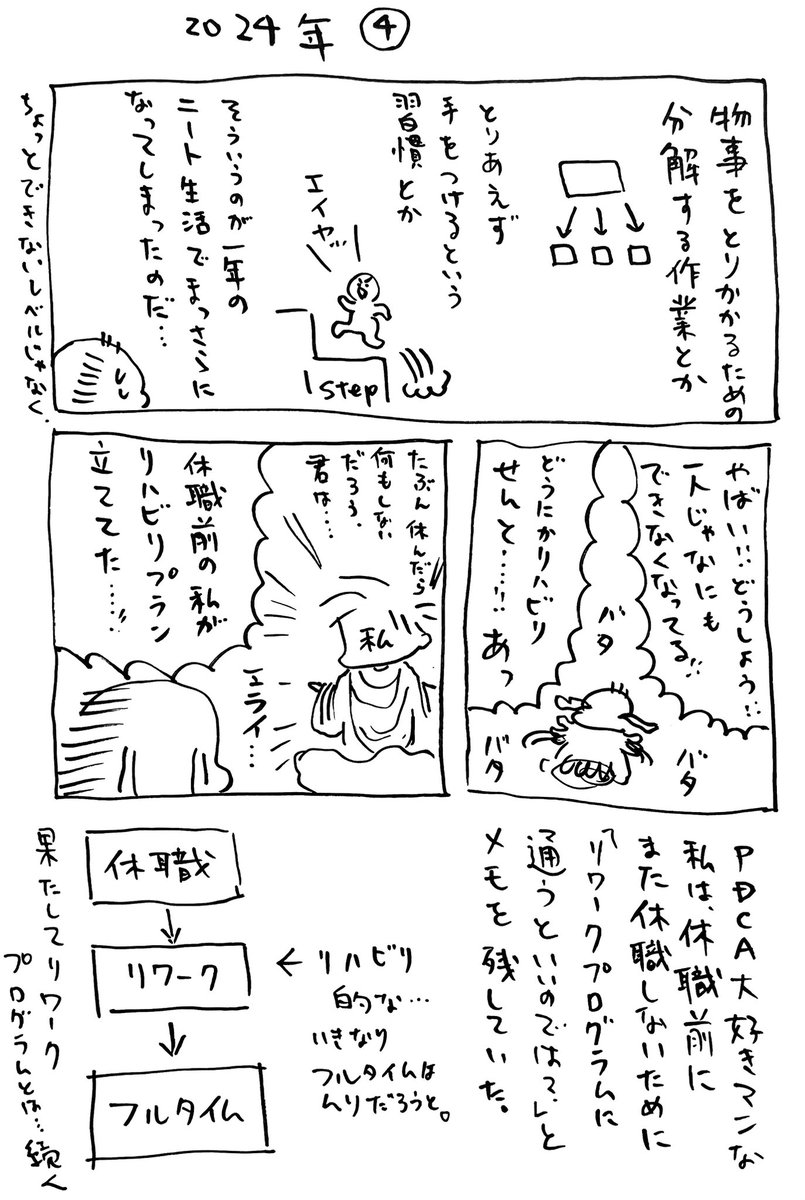 2024年 ④
物事をとりかかるための
分解する作業とか
とりあえず
手をつけるという
習慣とか
エイヤ…
1step
そういうのが一年の
ニート生活でまっさらに
なってしまったのだ…
ちょっとできないレベルじゃなく、
やばい!!どうしよう!!
一人じゃなにも
できなくなってる!!
バタ
バタ
バタ
どうにかリハビリ
せんと……!! あっ
たぶん休んだら
何もしない
だろう、
君は……
私
エライ…
休職前の私が
リハビリプラン
立ててた……!!
PDCA大好きマンな
私は、休職前に
また休職しないために
「リワークプログラムに
通うといいのでは?」と
メモを残していた。
休職
リワーク
フルタイム
← リハビリ
的な…
いきなり
フルタイムは
ムリだろうと。
果たしてリワーク
プログラムとは…続く